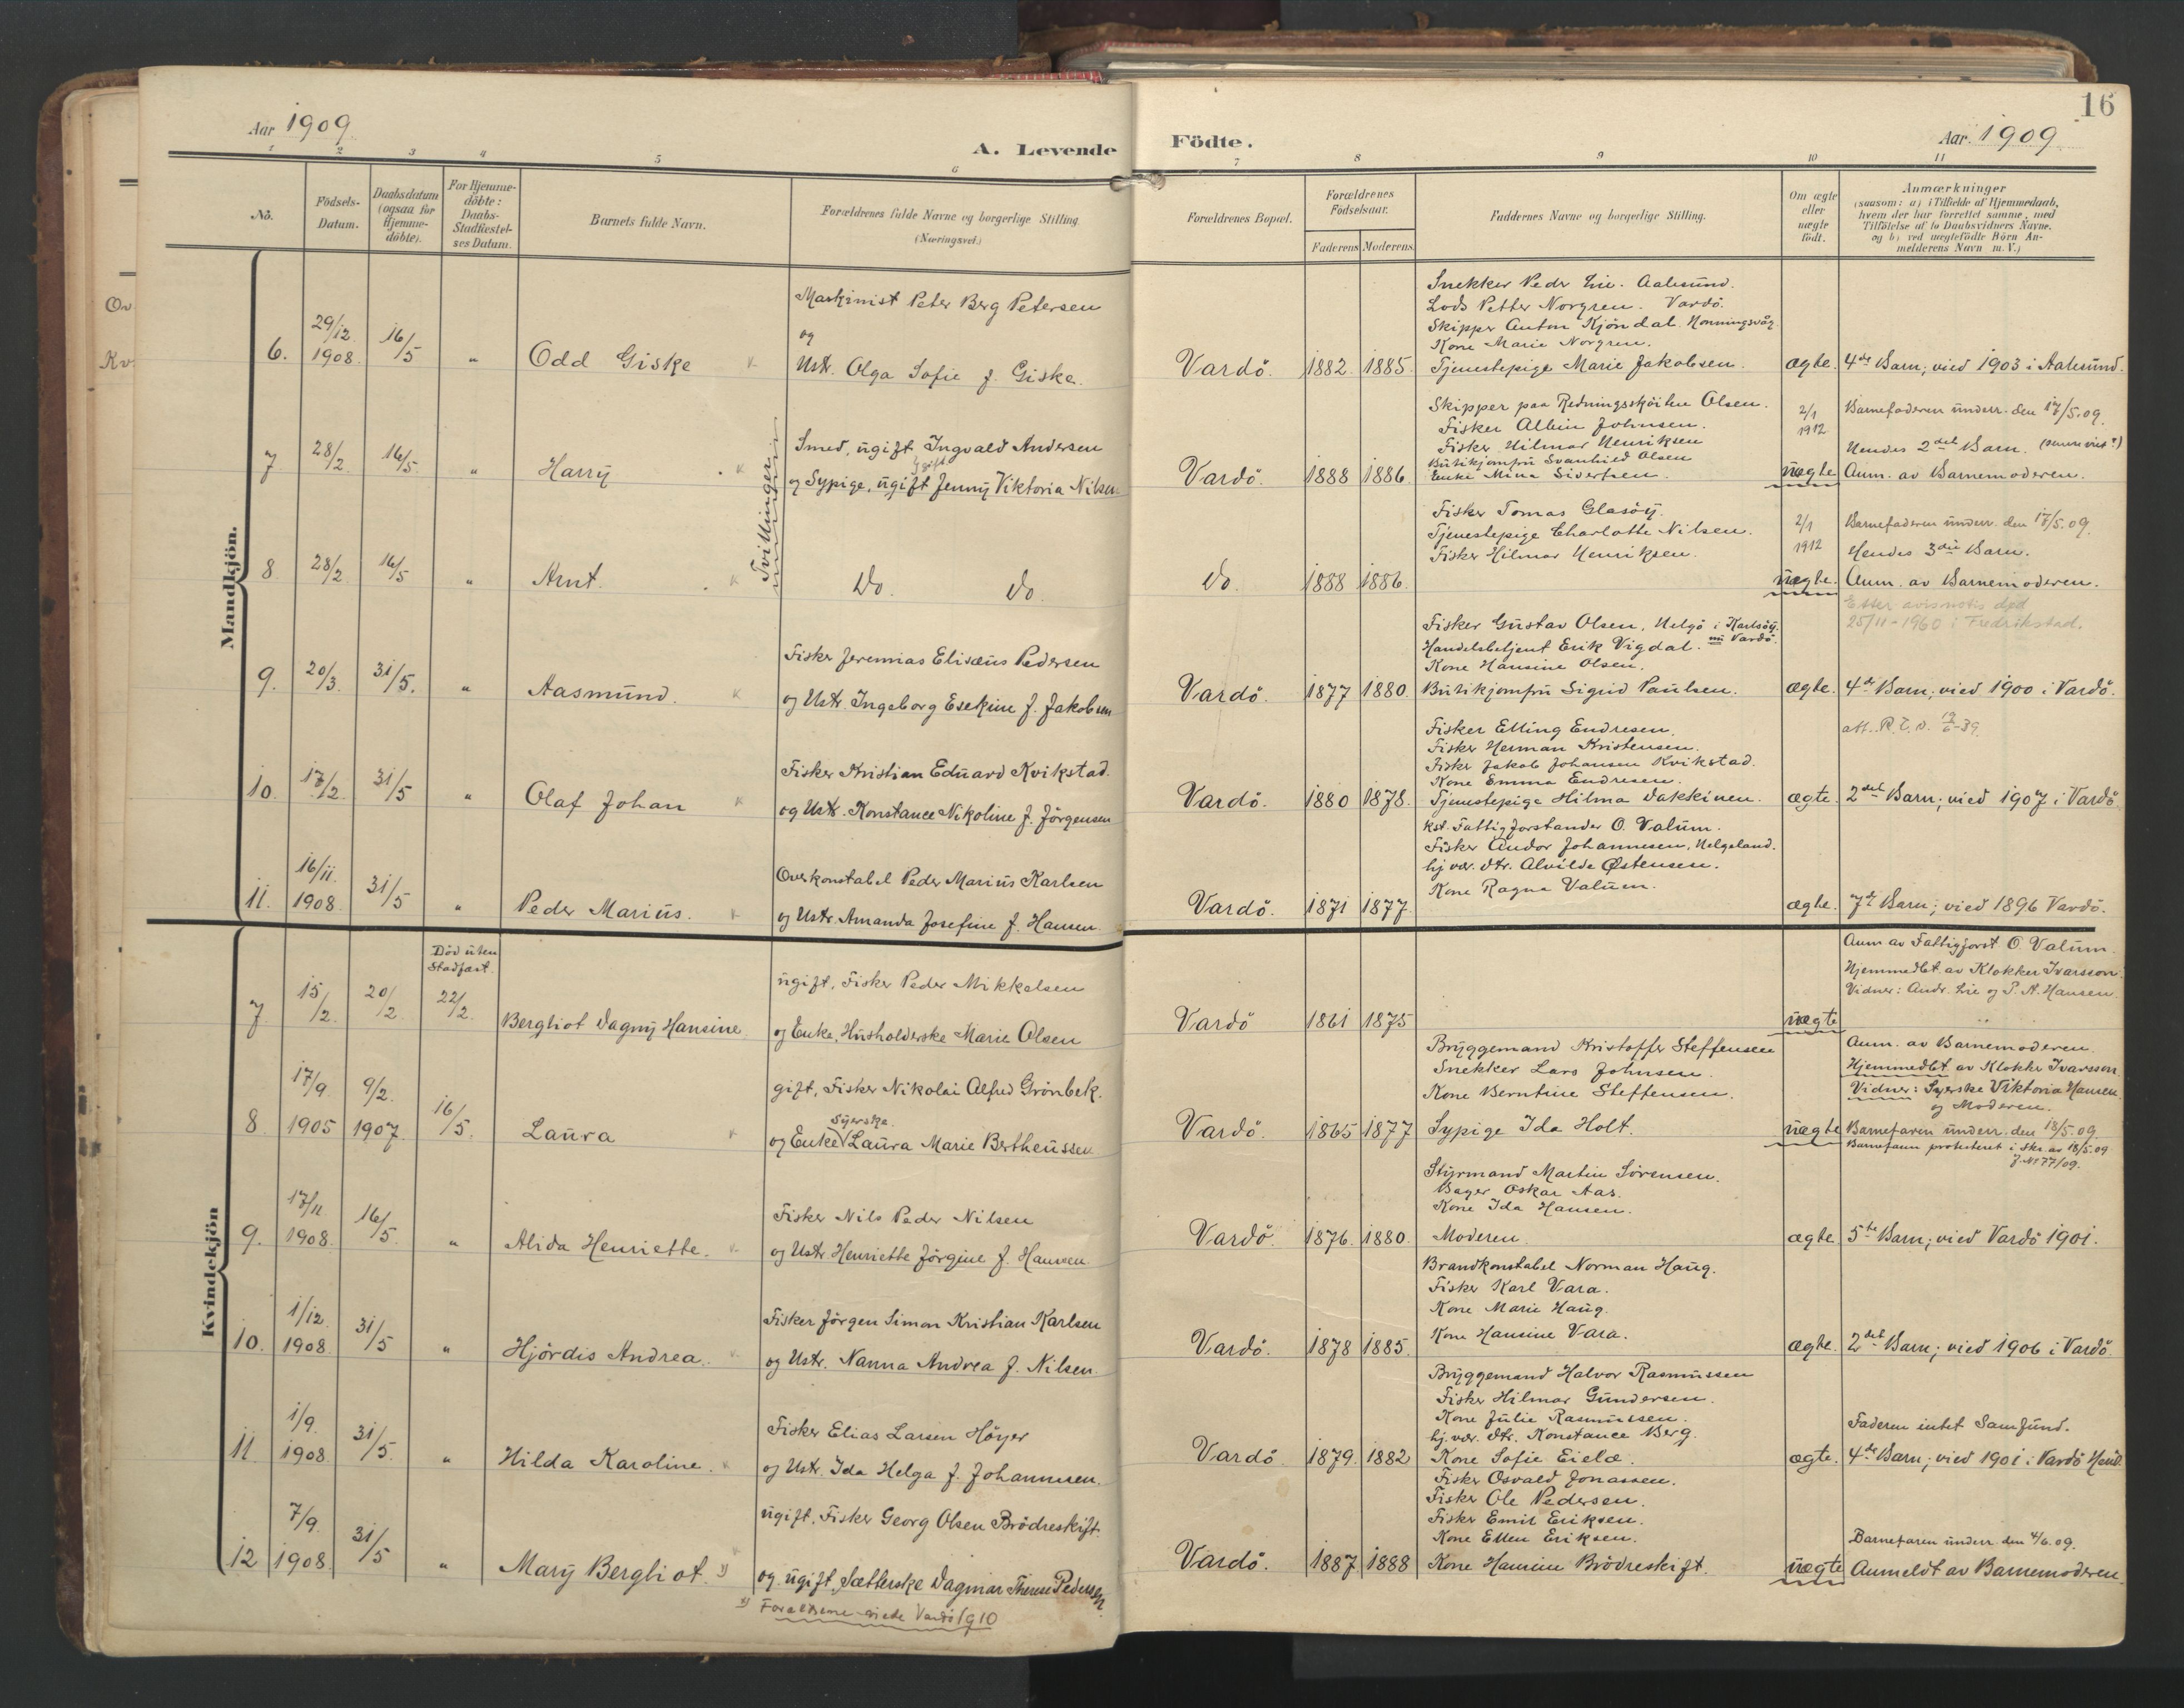 16
Aar 1909
A. Levende
Födte.
Aar 1909
1 2 3 4 5 6 7 8 9 10 11
No.
Födsels-
Datum.
Daabsdatum
(ogsaa for
Hjemme-
döbte).
For Hjemme-
döbte:
Daabs-
Stadfæstel-
ses Datum.
Barnets fulde Navn.
Forældrenes fulde Navne og borgerlige Stilling
(Næringsvei.)
Forældrenes Bopæl.
Forældrenes
Födselsaar.
Faderens Moderens
Faddernes Navne og borgerlige Stilling.
Om ægte
eller
uægte
födt.
Anmærkninger
(saasom: a) i Tilfælde af Hjemmedaab,
hvem der har forrettet samme, med
Tilföielse af to Daabsvidners Navne.
og b) ved uægtefödte Börn An-
melderens Navn m. V.)
Mandkjön.
6.
29/12
1908.
16/5
"
Odd Giske
Maskinist Peter Berg Petersen
og
Ustr. Olga Sofie f. Giske.
Vardö.
1882. 1885.
Snekker Peder Lie. Aalesund.
Lods Petter Norgren. Vardö.
Skipper Anton Kjöndal. Honningsvåg
Kone Marie Norgren.
Tjenestepige Marie Jakobsen.
ægte.
4de Barn; vied 1903 i Aalesund.
7
28/2.
16/5.
"
Harry
Tvillinger
Smed, ugift Ingvald Andersen
og Sypige, ugift Jenny Viktoria Nilsen
Vardö.
1888 1886
Skipper paa Redningssköiten Olsen.
Fisker Albin Johnsen.
Fisker Hilmar Henriksen
Butikjomfru Svanhild Olsen
Enke Mina Sivertsen.
2/1
1912
uægte
Barnefaderen underr. den 17/5.09.
Hendes 2det Barn.
Anm. av Barnemoderen.
8
28/2.
16/5
"
Arnt.
Do. Do.
Do.
1888 1886.
Fisker Tomas Glasöy.
Tjenestepige Charlotte Nilsen.
Fisker Hilmar Henriksen.
2/1
1912
uægte.
Barnefaderen underr. den 17/5.09.
Hendes 3die Barn.
Anm. av Barnemoderen.
Etter avisnotis død
25/11-1960 i Fredrikstad.
9.
20/3.
31/5.
"
Aasmund.
Fisker Jeremias Elisæus Pedersen
og Ustr. Ingeborg Esekine f. Jakobsen
Vardö
1877 1880.
Fisker Gustav Olsen, Helgö i Karlsöy.
Handelsbetjent Erik Vigdal. nu Vardö.
Kone Hansine Olsen.
Butikjomfru Sigrid Paulsen.
ægte.
4de Barn, vied 1900 i Vardö.
10.
17/2.
31/5
"
Olaf Johan
Fisker Kristian Eduard Kvikstad.
og Ustr. Konstance Nikoline f. Jörgensen
Vardö.
1880 1878.
Fisker Elling Endresen.
Fisker Herman Kristensen.
Fisker Jakob Johansen Kvikstad.
Kone Emma Endresen.
Tjenestepige Hilma Dakskinen.
ægte.
2det Barn; vied 1907 i Vardö
11.
16/11.
1908.
31/5
"
Peder Marius.
Overkonstabel Peder Marius Karlsen
og Ustr. Amanda Josefine f. Hansen.
Vardö.
1871 1877.
kst. Fattigforstander O. Valum.
Fisker Andor Johannesen, Helgeland.
hj.vær. dtr. Alvilde Østensen.
Kone Ragna Valum.
ægte.
7de Barn; vied 1896 Vardö.
Kvindekjön
7
15/2.
20/2.
Död uten
Stadfæst.
22/2.
Bergliot Dagny Hansine
ugift, Fisker Peder Mikkelsen
og Enke, Husholderske Marie Olsen
Vardö
1861 1875
uægte
Anm av Fattigforst O. Valum.
Hjemmedbt. av Klokker Ivarsson.
Vidner: Andr. Lie og P. A. Hansen.
8
17/9.
1905
9/2.
1907.
16/5.
Laura
gift, Fisker Nikolai Alfred Grönbek.
Syerske
og Enke Laura Marie Bertheussen
Vardö.
1865 1877
Bryggemand Kristoffer Steffensen
Snekker Lars Johnsen.
Kone Berntine Steffensen.
Sypige Ida Holt.
uægte
Anm. av Barnemoderen.
Hjemmedbt av Klokker Ivarsson.
Vidner: Syerske Viktoria Hansen
og Moderen.
Barnefaren underr. den 18/5.09.
Barnefaren protesteret i Skr. av 18/5.09
J. No 77/09.
9.
17/11
1908.
16/5.
"
Alida Henriette.
Fisker Nils Peder Nilsen
og Ustr. Henriette Jörgine f. Hansen
Vardö.
1876. 1880.
Styrmand Martin Sörensen.
Bager Oskar Aas.
Kone Ida Hansen.
Moderen.
ægte.
5te Barn; vied Vardö 1901.
10.
1/12.
1908.
31/5
"
Hjördis Andrea.
Fisker Jörgen Simon Kristian Karlsen
og Ustr. Nanna Andrea f. Nilsen.
Vardö.
1878 1885.
Brandkonstabel Norman Haug.
Fisker Karl Vara.
Kone Marie Haug.
Kone Hansine Vara.
ægte.
2det Barn; vied 1906 i Vardö.
11.
1/9.
1908.
31/5.
"
Hilda Karoline.
Fisker Elias Larsen Höyer
og Ustr. Ida Helga f. Johannesen.
Vardö
1879. 1882
Bryggemand Halvor Rasmussen
Fisker Hilmar Gundersen.
Kone Julie Rasmussen.
hj.vær. dtr. Konstance Berg.
Kone Sofie Eielæ.
ægte.
Faderen intet Samfund.
4de Barn; vied 1901 i Vardö
12
7/9.
1908.
31/5
"
Mary Bergliot.
ugift, Fisker Georg Olsen Brödreskift.
og ugift, Sætterske Dagmar Therese Pedersen.
Forældrene viede Vardö 1910
Vardö.
1887. 1888
Fisker Osvald Jonassen.
Fisker Ole Pedersen.
Fisker Emil Eriksen.
Kone Ellen Eriksen.
Kone Hansine Brödreskift.
uægte
Barnefaren underr. den 4/6.09.
Anmeldt av Barnemoderen.